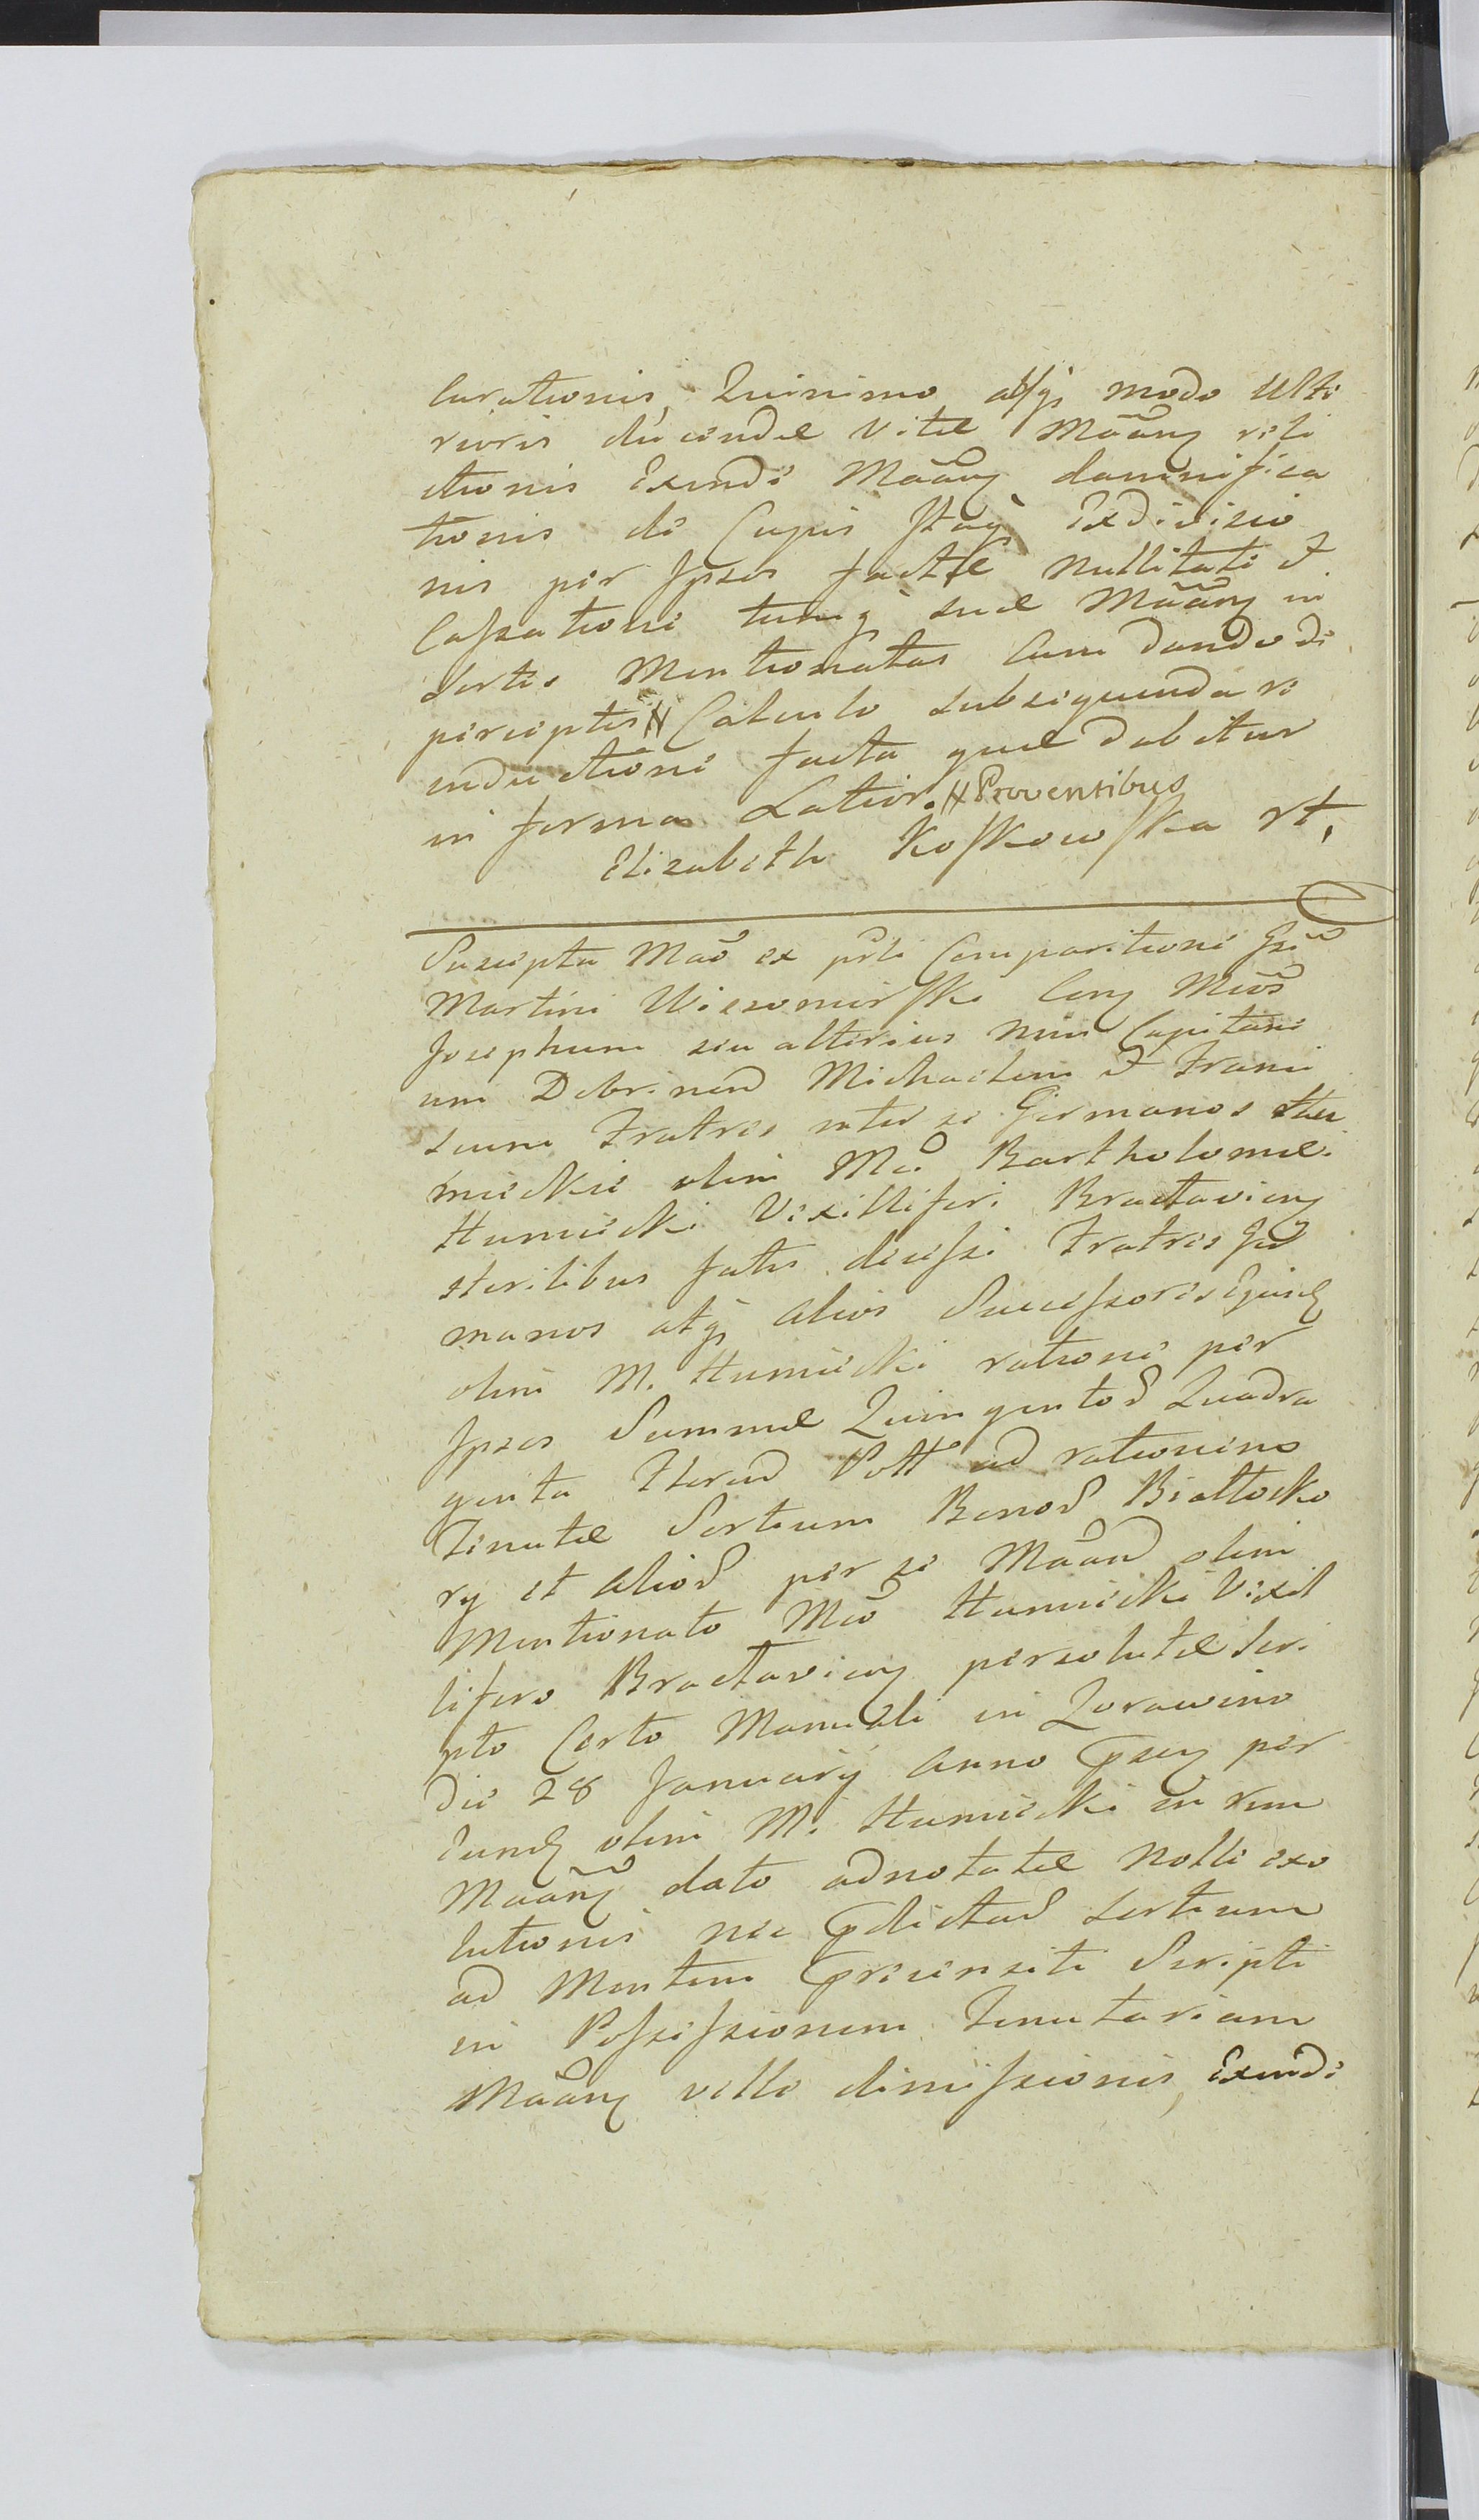 curationis, Quinimo absq3 modo ulte
rioris ducendae vitae Māānz reli
ctionis Exinde Māānz damnifica
tionis de Cujus Itaq3 Exdivisio
nis per Ipsos factae nullitate et
Cassatione tumq3 suae Māānz in
Sortes Mentionatas cum dando de
perceptis # Calculo subsequenda re
inductione facta quae dabitur
in forma Latior. # Proventibus
Elisabeth Koskowska rt,
Suscepta Mād ex pñti Comparitione Gsi
Martini Wiszomirski conz Mcos
Josephum seu alterius nñis Capitane
um Debrinen Michaelem et Franci
scum Fratres inter se Germanos Hu
mieckie olim Mci Bartholomaei
Humiecki Vexilliferi Braclaviens
sterilibus fatis decessi Fratres Ger
manos atq3 alios Successores Ejusd
olim M. Humiecki ratione per
Ipsos Summae Quingentos Quadra
ginta flrenor Poll ad rationem
Tenutae Sortium Bonor Białłocko
ry et alior per se Māān olim
Mentionato Mco Humiecki Vexil
lifero Braclaviens persolutae Scri
pto Certo Manuali in Zorawino
Die 28 January anno Psen per
Eund olim M. Humiecki in rem
Māānz dato adnotatae nolle exo
lutionis nec Pdictar Sortium
ad Mentem Precensiti Scripti
in Possessionem Tenutariam
Māānz velle dimissionis, Exinde